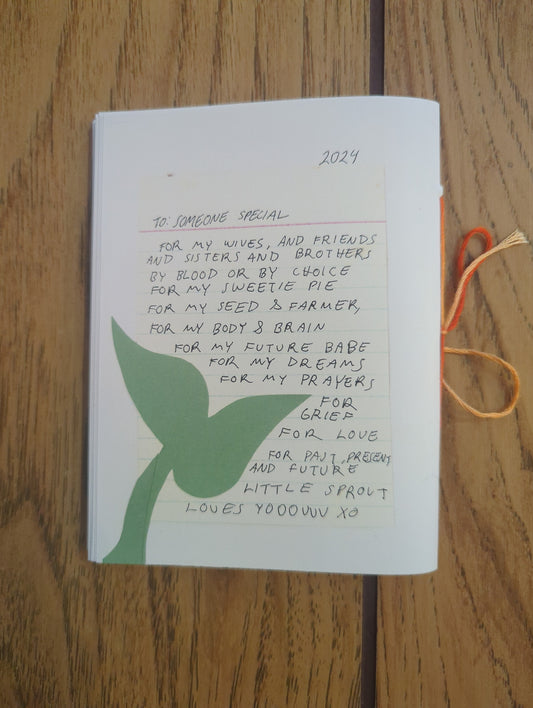 2024
TO: SOMEONE SPECIAL
FOR MY WIVES, AND FRIENDS
AND SISTERS AND BROTHERS
BY BLOOD OR BY CHOICE
FOR MY SWEETIE PIE
FOR MY SEED & FARMER,
FOR MY BODY & BRAIN
FOR MY FUTURE BABE
FOR MY DREAMS
FOR MY PRAYERS
FOR
GRIEF
FOR LOVE
FOR PAST, PRESENT
AND FUTURE
LITTLE SPROUT
LOVES YOOOUUU XO